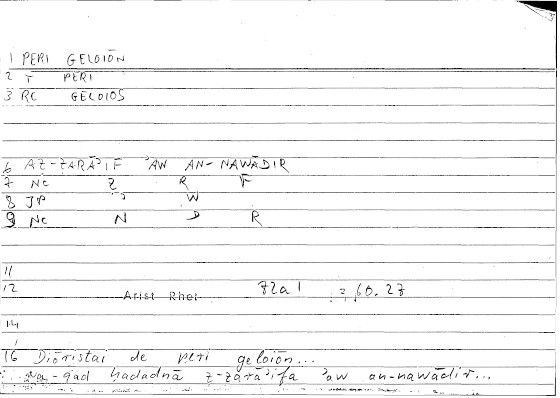 1 PERI GELOIŌN
2 T PERI
3 RC GELOIOS
6 AẒ-ẒARĀʾIF ʾAW AN-NAWĀDIR
7 Nc Ẓ R F
8 JP ʾ W
9 Nc N D R
11
12 Arist Rhet 72a1 = 60.27
14
16 Diōristai de peri geloiōn...
Wa-qad ḥadadnā ẓ-ẓarāʾifa ʾaw an-nawādir...